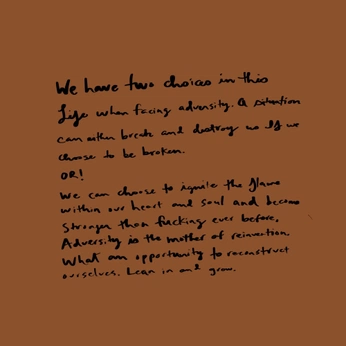 We have two choices in this
Life when facing adversity. A situation
can either break and destroy us If we
choose to be broken.
OR!
We can choose to ignite the flame
within our heart and soul and become
Stronger than fucking ever before.
Adversity is the mother of reinvention.
What an opportunity to reconstruct
ourselves. Lean in and grow.